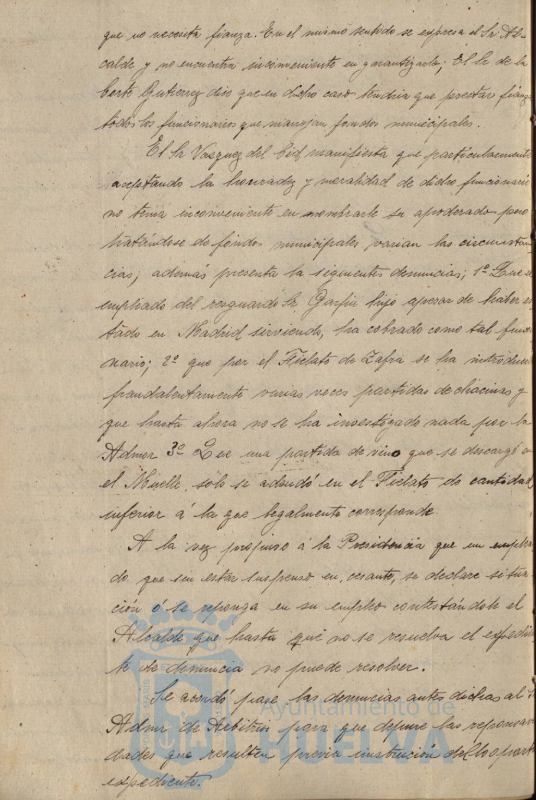 que no necesita fianza. En el mismo sentido se expresa el Sr Al-
calde y no encuentra inconveniente en garantizarle; El Sr de la
Corte Gutierrez dice que en dicho caso tendria que prestar fianza
todos los funcionarios que manejan fondos municipales.
El Sr Vazquez del Cid manifiesta que particularmente
aceptando la honradez y moralidad de dicho funcionario
no tenia inconveniente en nombrarle su apoderado pero
tratandose de fondos municipales varian las circunstan
cias; además presenta la siguientes denuncias; 1º Que el
empleado del resguardo Sr Garfia hijo apesar de haber es
tado en Madrid sirviendo, ha cobrado como tal funcio
nario; 2º que por el Fielato de Zafra se ha introducido
fraudulentamente varias veces partidas de chacinas y
que hasta ahora no se ha investigado nada por la
Admor 3º Que una partida de vino que se descargó en
el Muelle, solo se adeudó en el Fielato de cantidad
inferior á la que legalmente corresponde.
A la vez propuso á la Presidencia que un emplea
do que sin estar suspenso ni cesante, se declare situa
ción ó se reponga en su empleo contestándole el
Alcalde que hasta que no se resuelva el expedien
te de denuncia no puede resolver.
Se acordó pase las denuncias antes dichas al Sr
Admor de Arbitrios para que depure las responsabi
dades que resulten previa instrucción del oportuno
expediente.
Ayuntamiento de
HUELVA